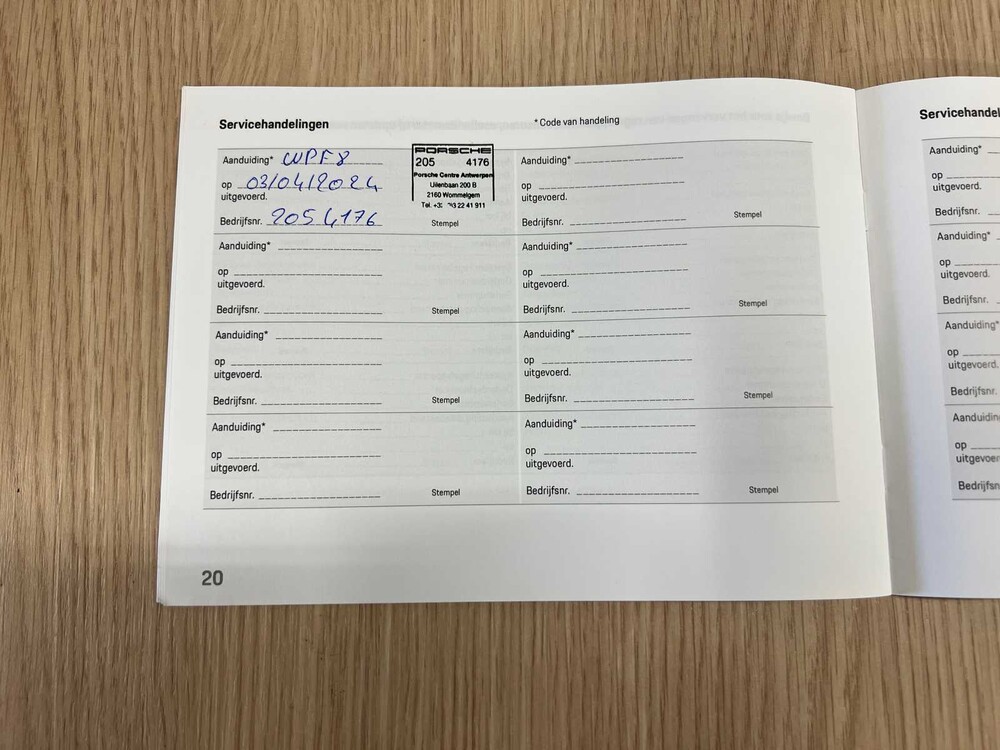 Servicehandelingen
* Code van handeling
Aanduiding* WPF8
op 03/04/2024
uitgevoerd.
Bedrijfsnr. 2054176
PORSCHE
205 4176
Porsche Centre Antwerpen
Uilenbaan 200 B
2160 Wommelgem
Tel. +32 22 41 911
Stempel
Aanduiding*
op
uitgevoerd.
Bedrijfsnr.
Stempel
Aanduiding*
op
uitgevoerd.
Bedrijfsnr.
Stempel
Aanduiding*
op
uitgevoerd.
Bedrijfsnr.
Stempel
Aanduiding*
op
uitgevoerd.
Bedrijfsnr.
Stempel
Aanduiding*
op
uitgevoerd.
Bedrijfsnr.
Stempel
Aanduiding*
op
uitgevoerd.
Bedrijfsnr.
Stempel
Aanduiding*
op
uitgevoerd.
Bedrijfsnr.
Stempel
20
Servicehandel
Aanduiding*
op
uitgevoerd.
Bedrijfsnr.
Aanduiding*
op
uitgevoerd.
Bedrijfsnr.
Aanduiding*
op
uitgevoerd.
Bedrijfsnr.
Aanduidin
op
uitgevoer
Bedrijfsn